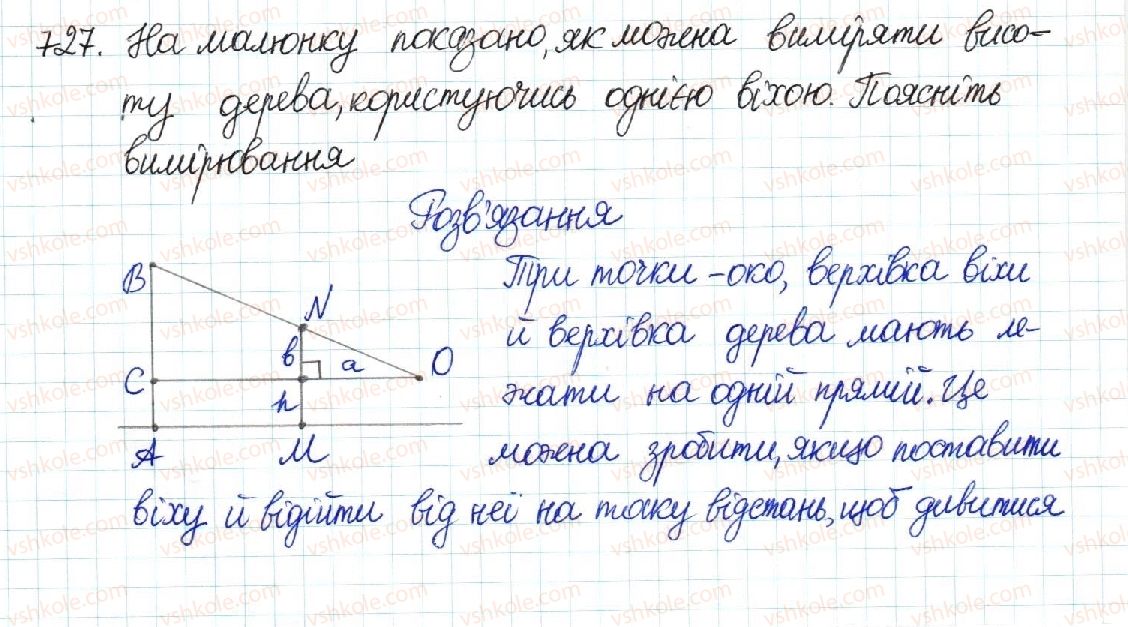 727. На малюнку показано, як можна виміряти висо-
ту дерева, користуючись однією віхою. Поясніть
вимірювання
Розв'язання
B
N
в
a
O
C
h
A
M
Три точки - око, верхівка віхи
й верхівка дерева мають ле-
жати на одній прямій. Це
можна зробити, якщо поставити
віху й відійти від неї на таку відстань, щоб дивитися
vshkole.com